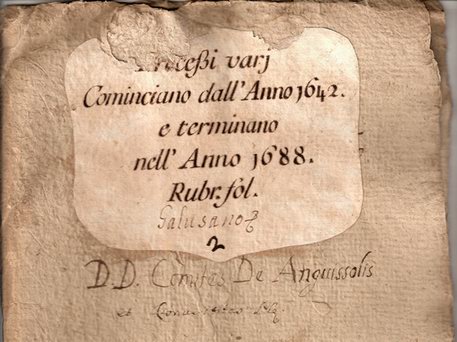 Proceßi varj
Cominciano dall'Anno 1642.
e terminano
nell'Anno 1688.
Rubr. fol.
2
D.D. Comites De Anguissolis
et